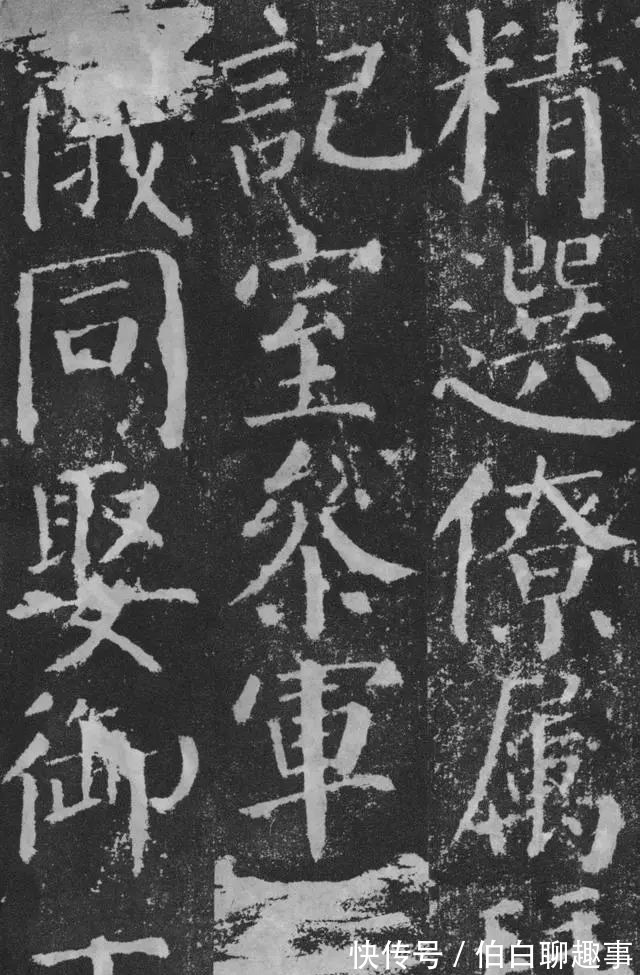 精選僚屬
記室參軍
儀同娶御
快传号 / 伯白聊趣事